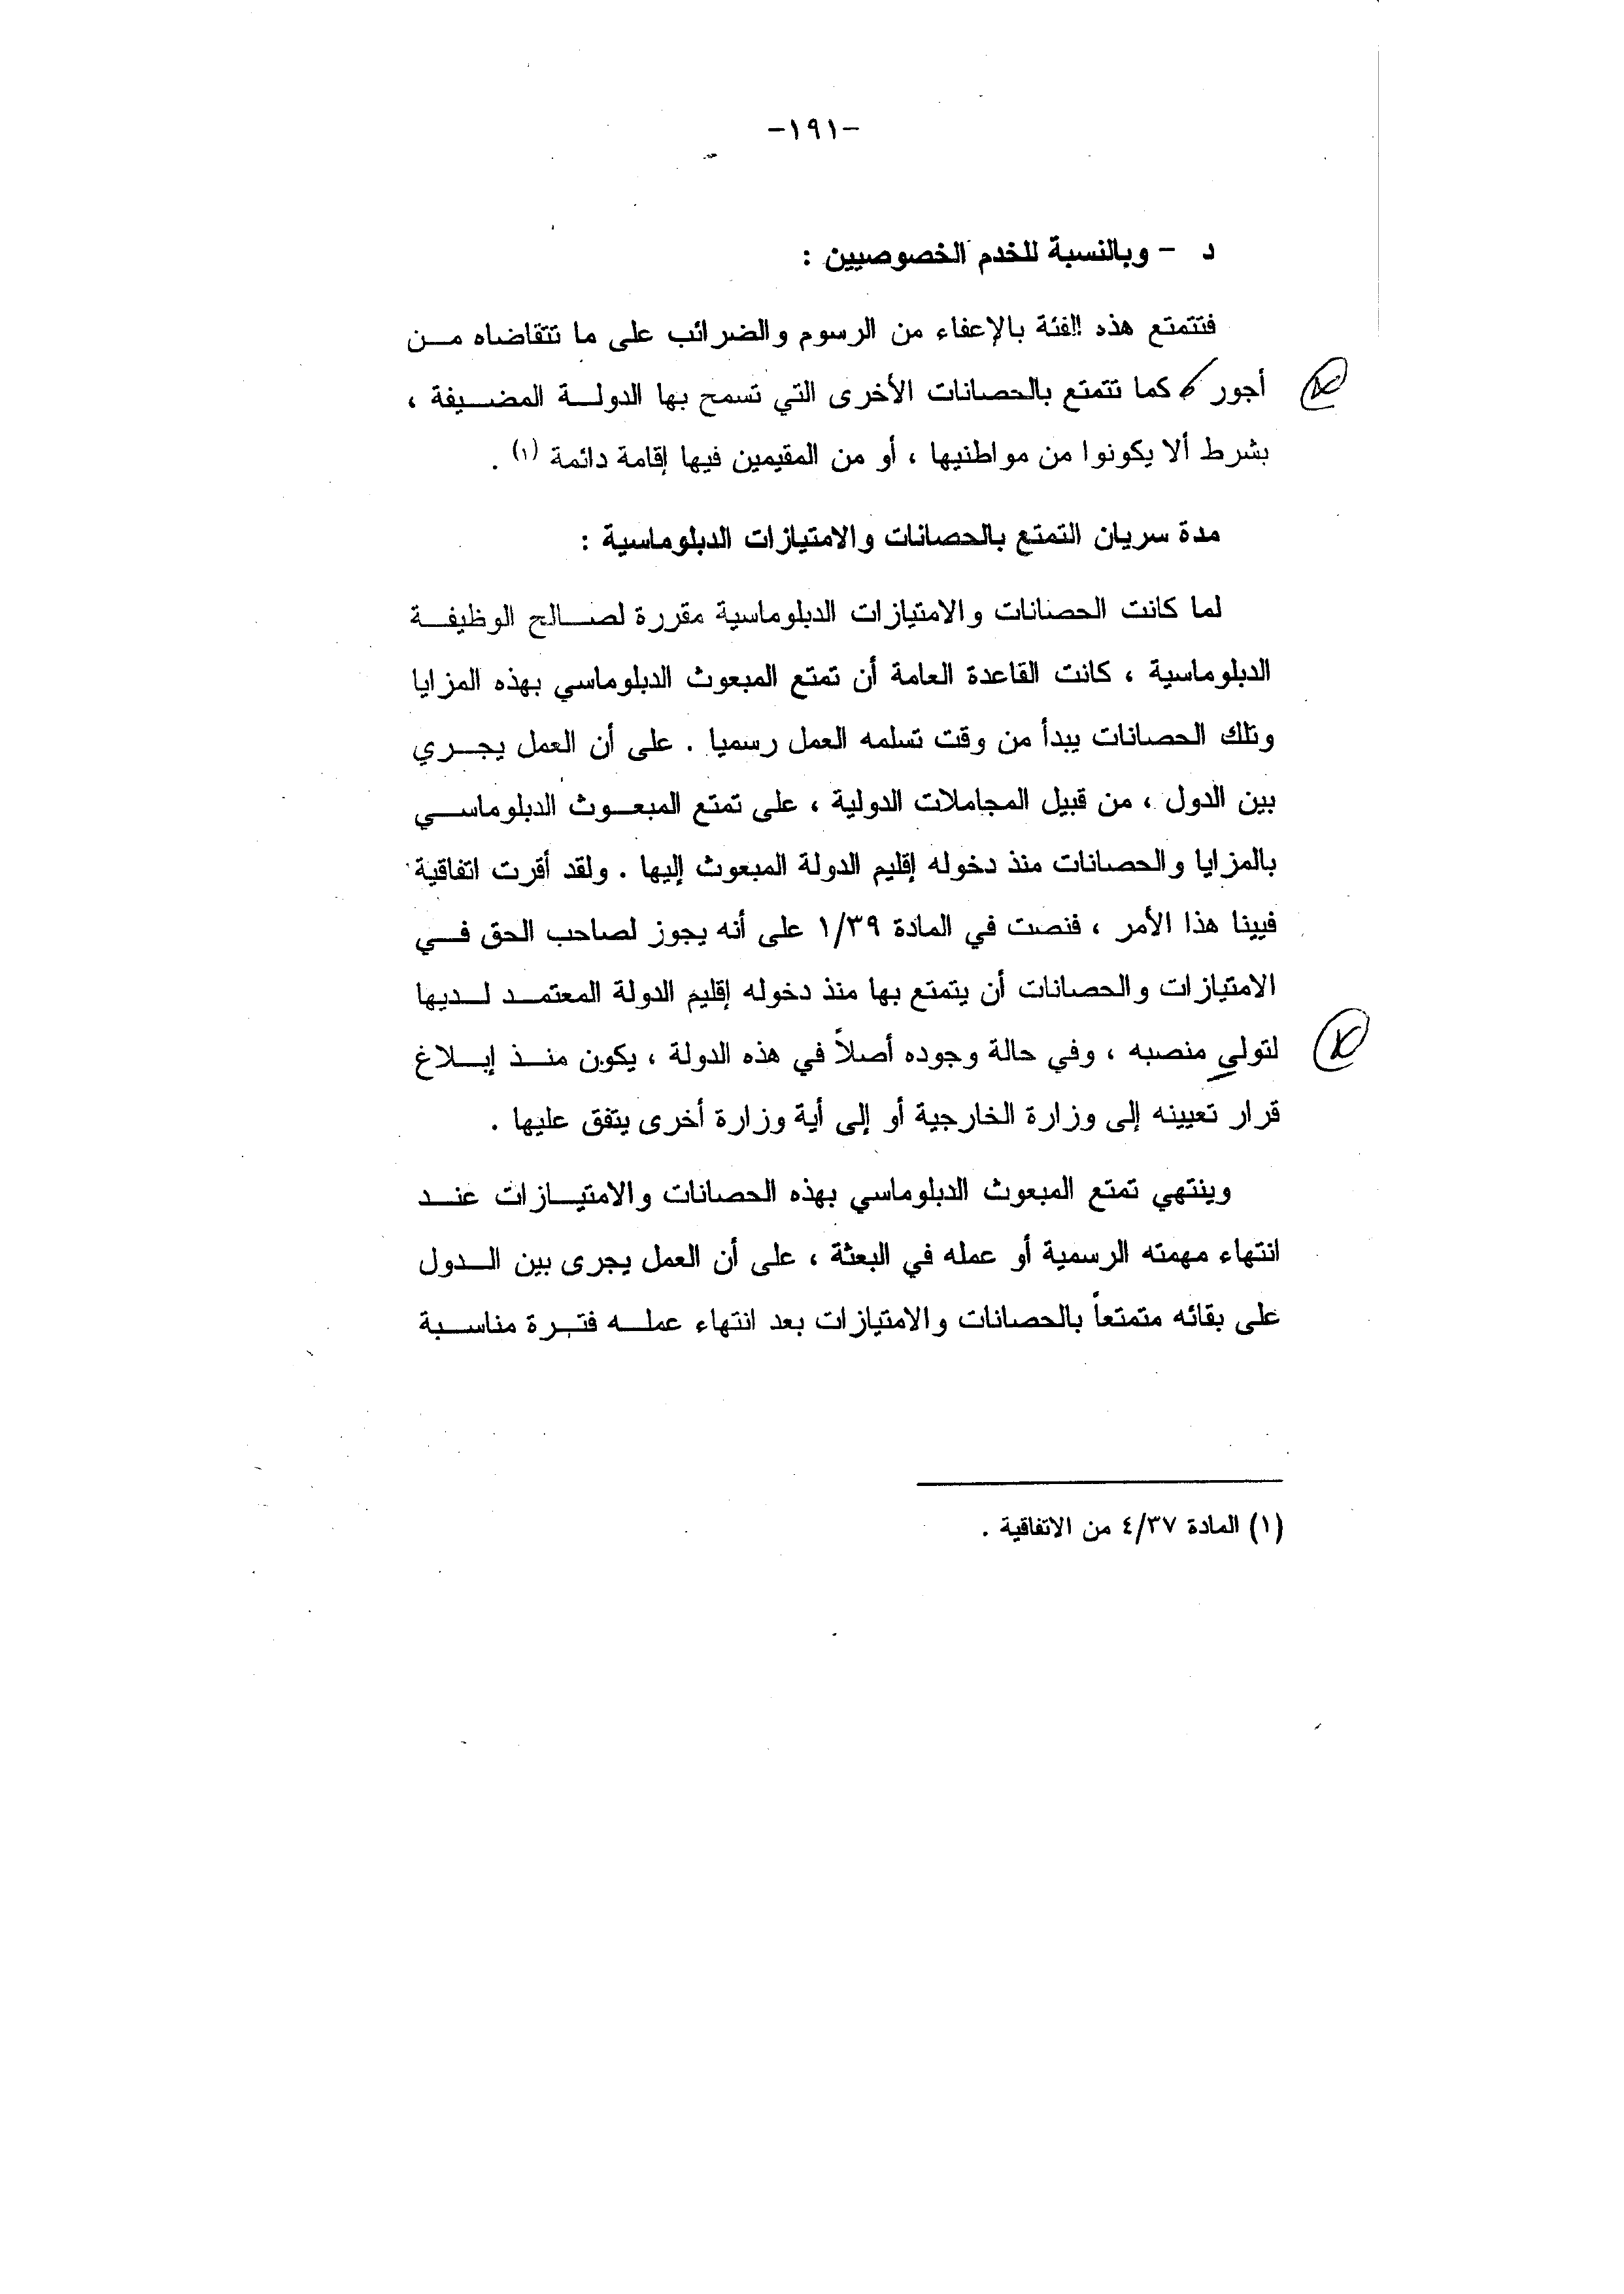 -١٩١-
د - وبالنسبة للخدم الخصوصيين :
فتتمتع هذه الفئة بالإعفاء من الرسوم والضرائب على ما تتقاضاه من
أجور ، كما تتمتع بالحصانات الأخرى التي تسمح بها الدولة المضيفة ،
بشرط ألا يكونوا من مواطنيها ، أو من المقيمين فيها إقامة دائمة (١) .
مدة سريان التمتع بالحصانات والامتيازات الدبلوماسية :
لما كانت الحصانات والامتيازات الدبلوماسية مقررة لصالح الوظيفة
الدبلوماسية ، كانت القاعدة العامة أن تمتع المبعوث الدبلوماسي بهذه المزايا
وتلك الحصانات يبدأ من وقت تسلمه العمل رسميا . على أن العمل يجري
بين الدول ، من قبيل المجاملات الدولية ، على تمتع المبعوث الدبلوماسي
بالمزايا والحصانات منذ دخوله إقليم الدولة المبعوث إليها . ولقد أقرت اتفاقية
فيينا هذا الأمر ، فنصت في المادة ١/٣٩ على أنه يجوز لصاحب الحق في
الامتيازات والحصانات أن يتمتع بها منذ دخوله إقليم الدولة المعتمد لديها
لتولي منصبه ، وفي حالة وجوده أصلاً في هذه الدولة ، يكون منذ إبلاغ
قرار تعيينه إلى وزارة الخارجية أو إلى أية وزارة أخرى يتفق عليها .
وينتهي تمتع المبعوث الدبلوماسي بهذه الحصانات والامتيازات عند
انتهاء مهمته الرسمية أو عمله في البعثة ، على أن العمل يجرى بين الدول
على بقائه متمتعاً بالحصانات والامتيازات بعد انتهاء عمله فترة مناسبة
(١) المادة ٤/٣٧ من الاتفاقية .